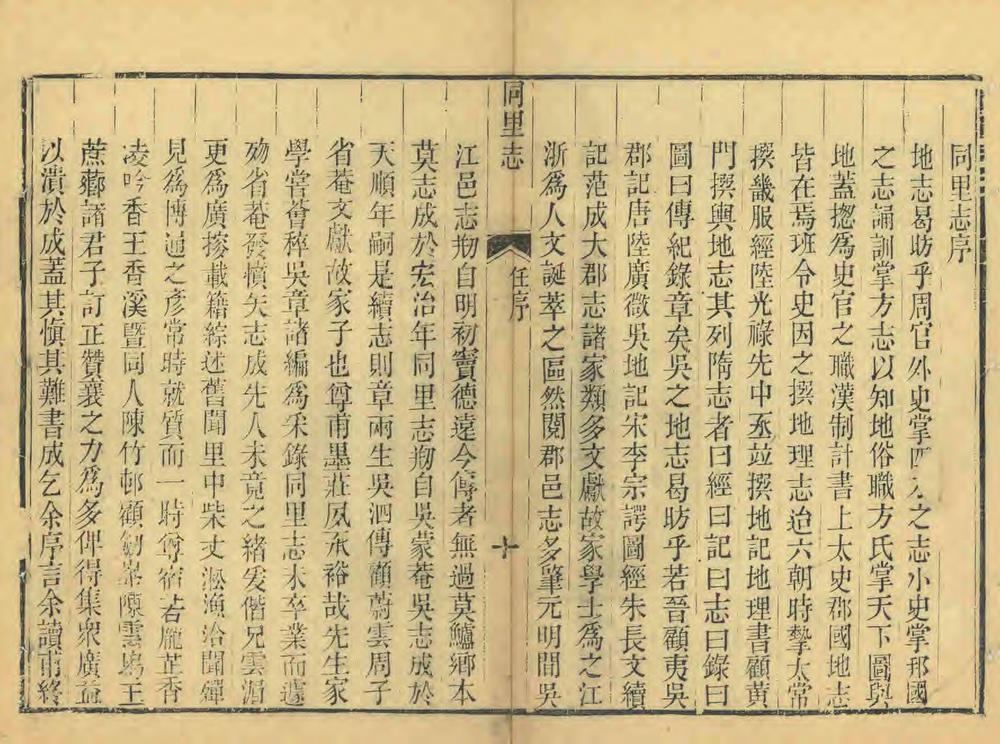 同里志序
地志曷昉乎周官外史掌四方之志小史掌邦國
之志誦訓掌方志以知地俗職方氏掌天下圖與
地蓋揔為史官之職漢制計書上太史郡國地志
皆在焉班令史因之撰地理志迨六朝時摯太常
撰畿服經陸光祿先中丞竝撰地記地理書顧黃
門撰輿地志其列隋志者曰經曰記曰志曰錄曰
圖曰傳紀錄章矣吳之地志曷昉乎若晉顧夷吳
郡記唐陸廣微吳地記宋李宗諤圖經朱長文續
記范成大郡志諸家類多文獻故家學士為之江
浙為人文誕萃之區然閱郡邑志多肇元明閒吳
同里志
任序
十
江邑志刱自明初竇德遠今傳者無過莫鱸鄉本
莫志成於宏治年同里志刱自吳蒙菴吳志成於
天順年嗣是續志則章兩生吳泗傳顧蔚雲周子
省菴文獻故家子也尊甫墨莊夙承裕哉先生家
學嘗薈稡吳章諸編為采錄同里志未卒業而遽
歾省菴發憤矢志成先人未竟之緒爰偕兄雲湄
更為廣摉載籍綜述舊聞里中柴丈漁洽聞殫
見為博通之彥常時就質而一時耆宿若龐芷香
淩吟香王香溪曁同人陳竹邨顧陳雲王
蔗薌諸君子訂正贊襄之力為多俾得集衆廣益
以潰於成蓋其愼其難書成乞余序言余讀甫終